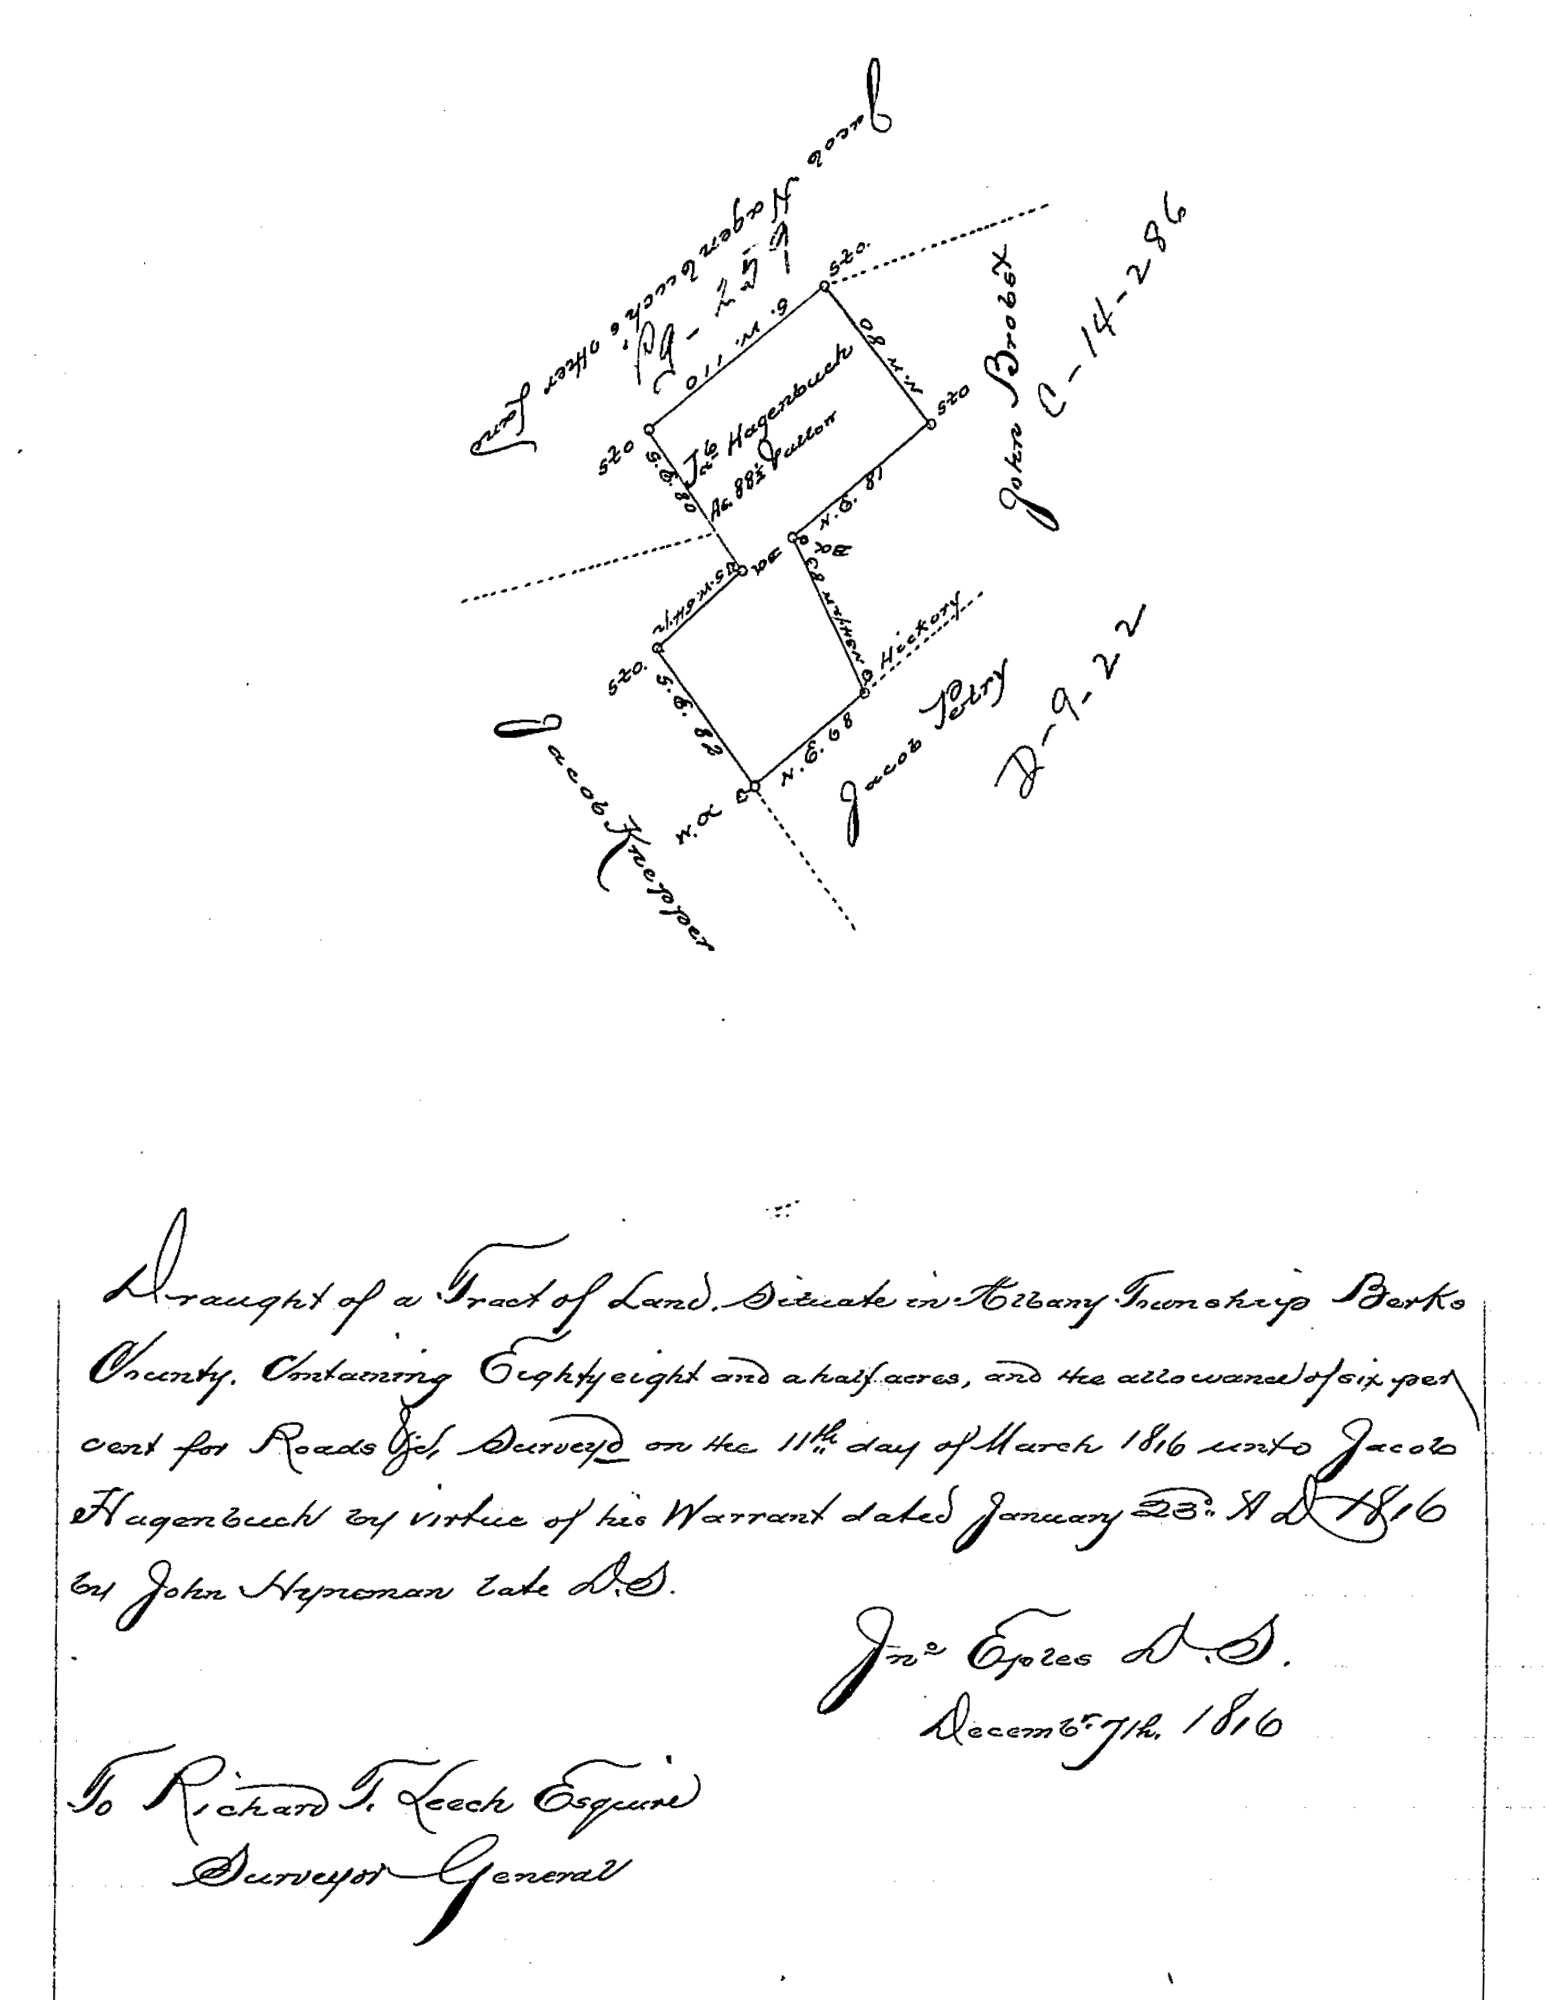 Jacob Hagenbuch's other Land
C-14-286
John Brobst
Sto.
S. W. 110
N. W 80
Sto
Sto
Jab Hagenbuch
Ac. 88½ & allow
S. E. 80
N. E. 81
BO
BO
S. W. 54½
N 34½ W 83
Hickory
Sto.
S. E. 82
N. E. 68
Jacob Petry
D-9-22
W. O
Jacob Knepper
Draught of a Tract of Land. Situate in Albany Township Berks
County. Containing Eighty eight and a half acres, and the allowance of six per
cent for Roads &c, Surveyd on the 11th day of March 1816 unto Jacob
Hagenbuch by virtue of his Warrant dated January 23d A D 1816
by John Hyneman late D.S.
Jno Eples D.S.
Decembr. 7th. 1816
To Richard T. Leech Esquire
Surveyor General